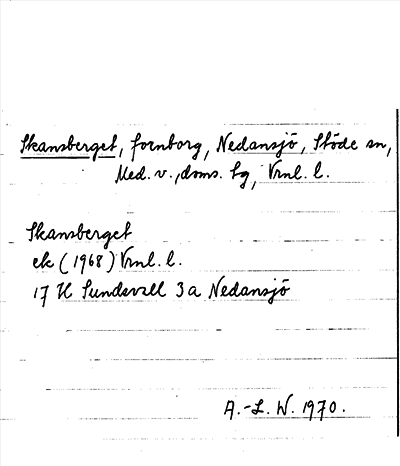 Skansberget, fornborg, Nedansjö, Stöde sn,
Med. v., doms. tg, Vrnl. l.
Skansberget
ek (1968) Vrnl. l.
17 H Sundsvall 3 a Nedansjö
A.-L. W. 1970.